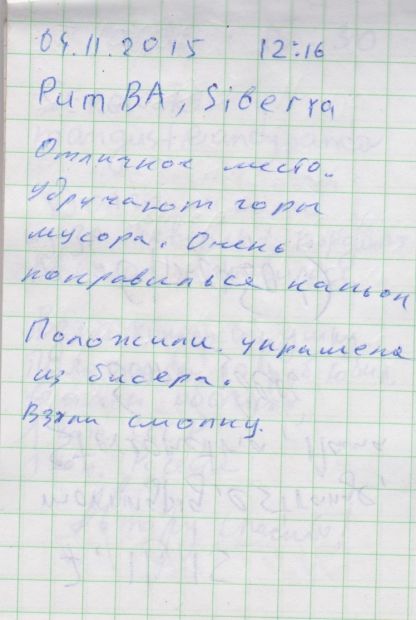 04.11.2015 12:16
PumBA, Siberra
Отличное место.
удручают горы
мусора. Очень
понравилься каньон
Положили украшение
из бисера.
Взяли смолку.